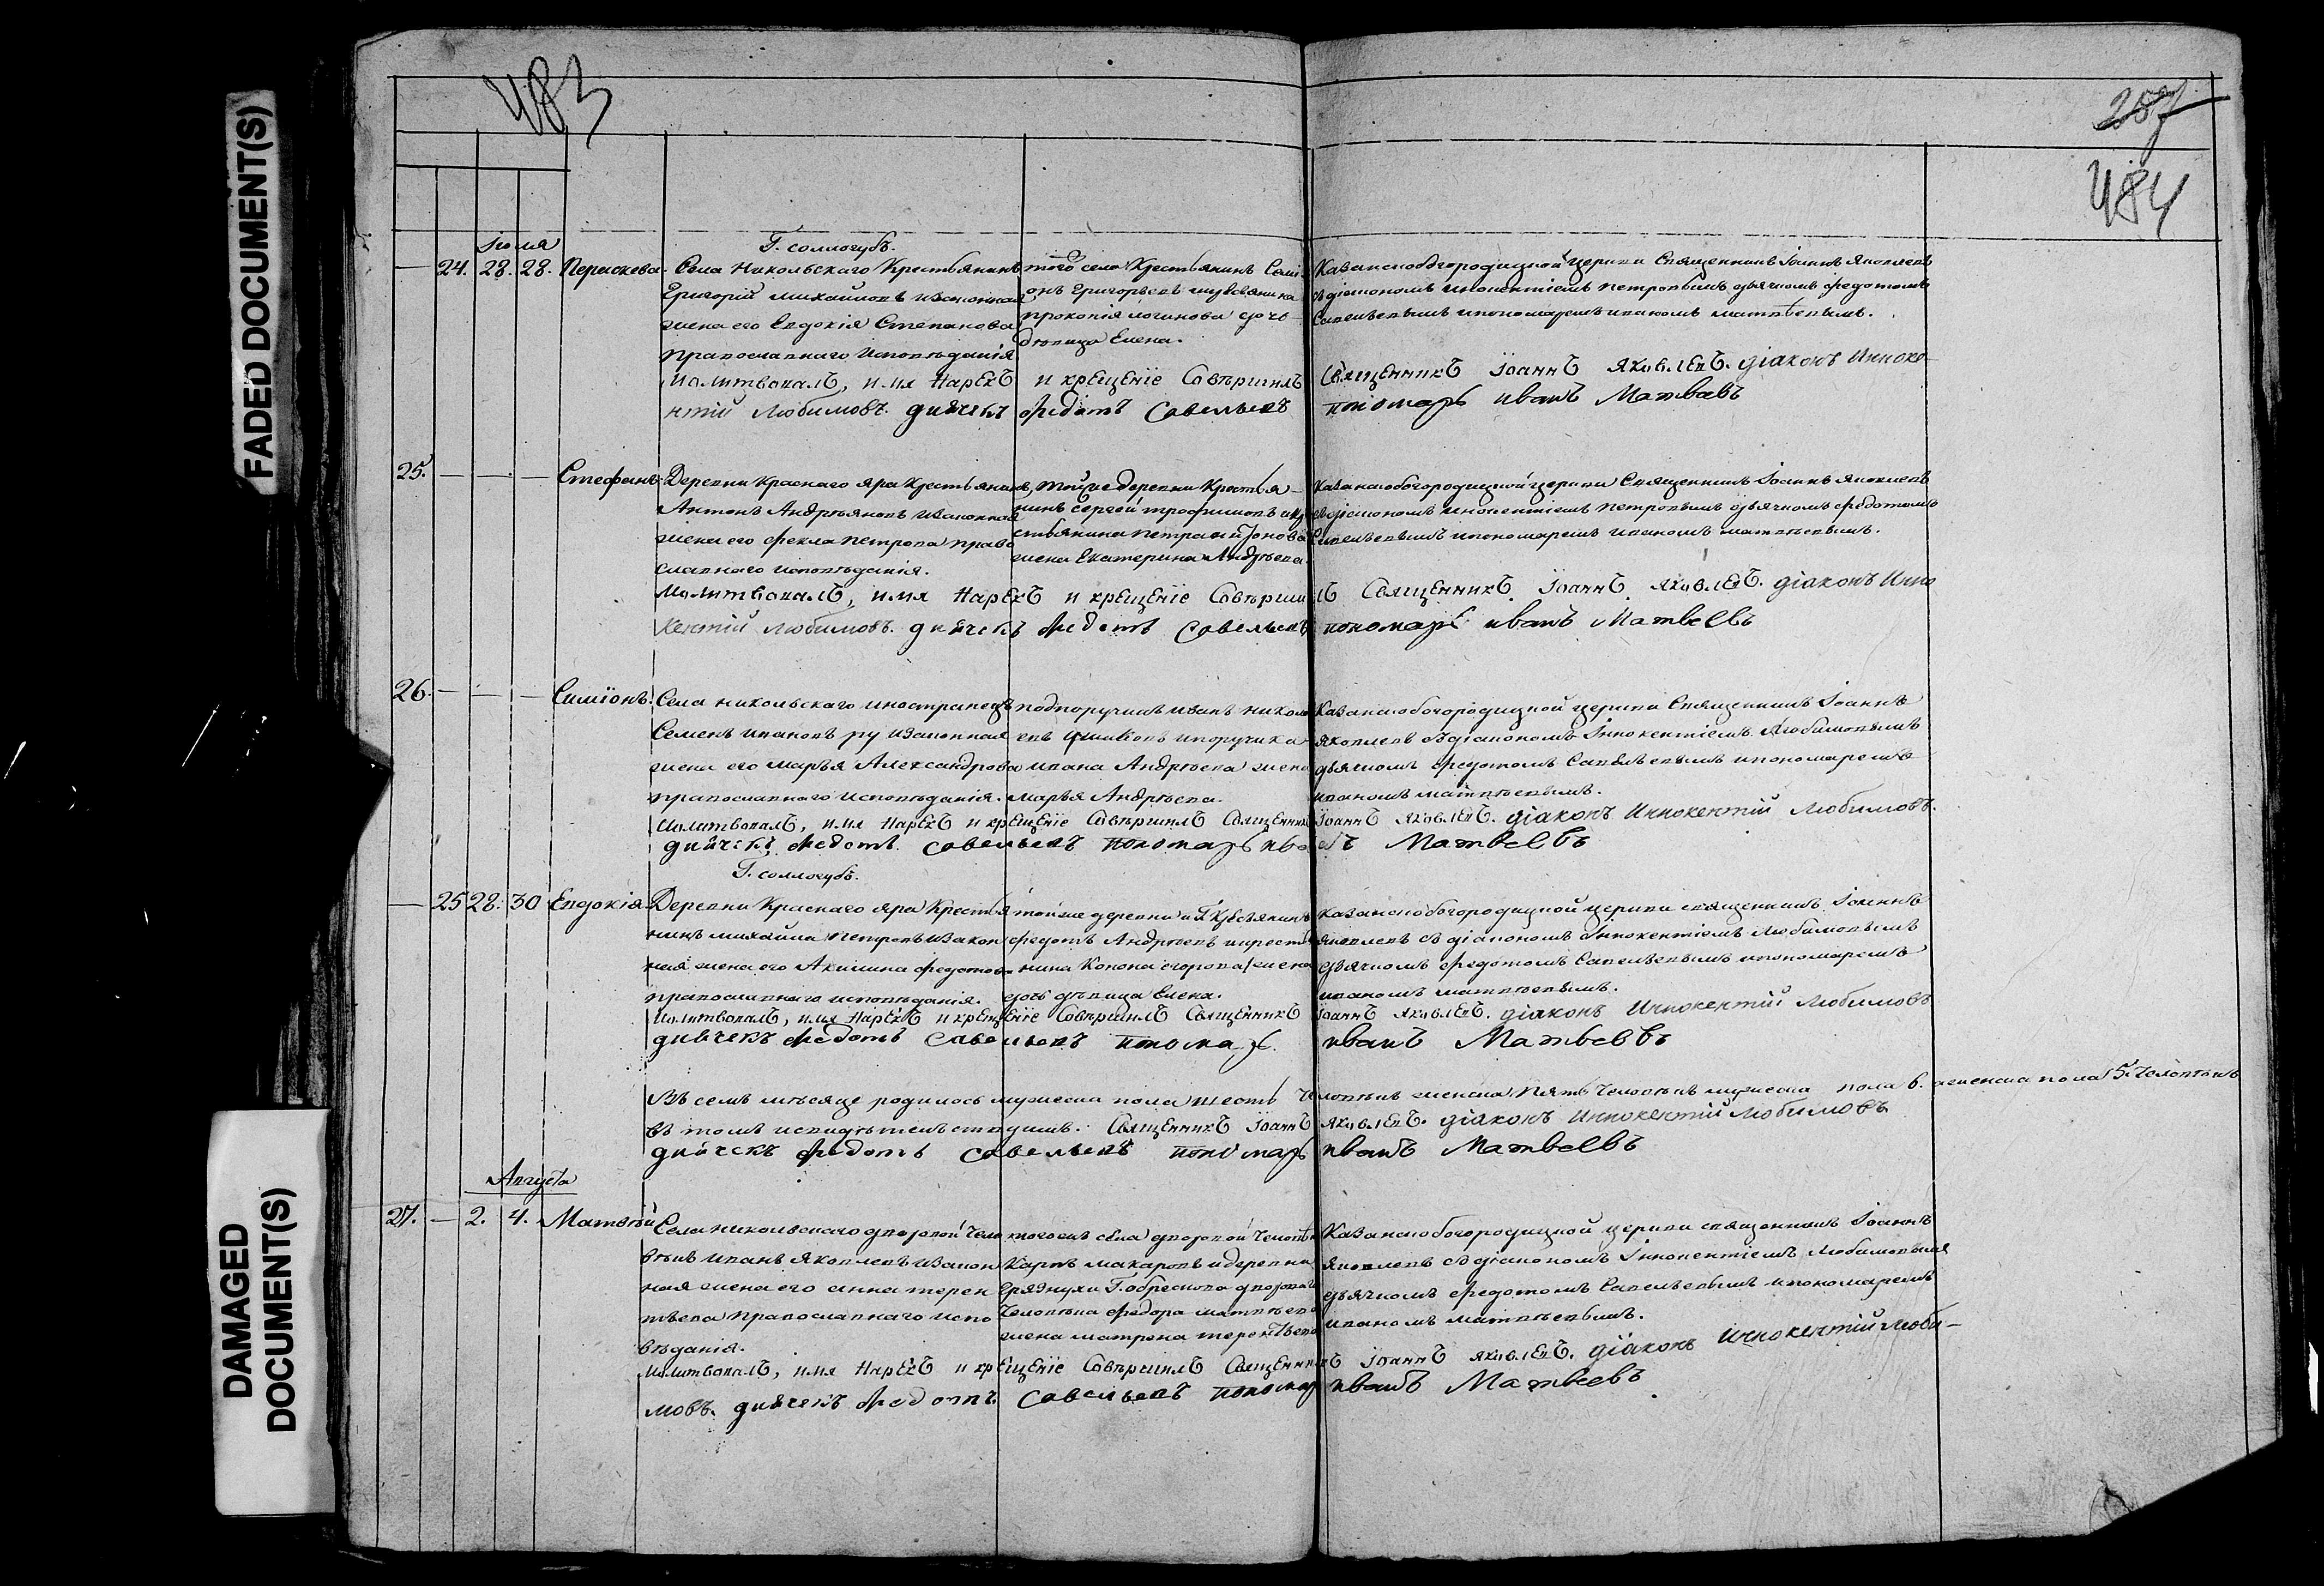 FADED DOCUMENT(S)
DAMAGED
DOCUMENT(S)
483
287
484
Іюля
Г. соллогубъ.
24. 28. 28. Перасковa. Села Никольскаго Крестьянинъ
Григорій михайловъ изаконная
жена его Евдокія Степанова
православнаго исповѣданія
того села Крестьянинъ Семі
онъ Григорьевъ
прокопія логинова дочь
дѣвица Елена.
Казанскобогородицкой церкви Священникъ Іоаннъ Яковлевъ
съ діакономъ инокентіемъ петровымъ дьячкомъ федотомъ
Савельевымъ ипономаремъ иваномъ матвѣевымъ.
молитвовалъ, имя нарекъ и крещенїе совѣршилъ Священникъ Їоаннъ Яковлевъ. діаконъ Инноке-
нтій Любимовъ. дьячекъ Федотъ Савельевъ пономарь иванъ Матвѣевъ
25. Стефанъ. Деревни Краснаго яра Крестьянинъ
Антонъ Андрѣяновъ изаконная
жена его фекла петрова право
славнаго исповѣданія.
тойже деревни Крестья-
нинъ сергей трофимовъ икре
стьянина петра
жена Екатерина Андрѣева.
Казанскобогородицкой церкви Священникъ Іоаннъ Яковлевъ
съ діакономъ инокентіемъ петровымъ дьячкомъ федотомъ
Савельевымъ ипономаремъ иваномъ матвѣевымъ.
молитвовалъ, имя нарекъ и крещенїе совѣршилъ Священникъ Їоаннъ Яковлевъ. діаконъ Инно
кентій Любимовъ. дьячекъ Федотъ Савельевъ пономарь иванъ Матвѣевъ
26. Симіонъ. Села никольскаго иностранецъ
Семенъ ивановъ ру изаконная
жена его марья Александрова
православнаго исповѣданія.
подпоручикъ иванъ никола
евъ ушаковъ ипоручика
ивана Андрѣева жена
марья Андрѣева.
Казанскобогородицкой церкви Священникъ Іоаннъ
Яковлевъ съ діакономъ Іннокентіемъ Любимовымъ
дьячкомъ федотомъ Савельевымъ ипономаремъ
иваномъ матвѣевымъ.
молитвовалъ, имя нарекъ и крещенїе совѣршилъ Священникъ Їоаннъ Яковлевъ. діаконъ Иннокентій Любимовъ.
дьячекъ Федотъ Савельевъ пономарь иванъ Матвѣевъ
Г. соллогубъ.
25 28. 30 Евдокія. Деревни Краснаго яра Крестья
нинъ михайла петровъ изакон
ная жена его Акилина федотова
православнаго исповѣданія.
тойже деревни
федотъ Андрѣевъ икресть
нина Конона егорова
дочь дѣвица Елена.
Казанскобогородицкой церкви священникъ Іоаннъ
Яковлевъ съ діакономъ Іннокентіемъ Любимовымъ
дьячкомъ федотомъ Савельевымъ ипономаремъ
иваномъ матвѣевымъ.
молитвовалъ, имя нарекъ и крещенїе совѣршилъ Священникъ Їоаннъ Яковлевъ. діаконъ Иннокентій Любимовъ
дьячекъ Федотъ Савельевъ пономарь иванъ Матвѣевъ
Въ семъ мѣсяце родилось мужеска пола шесть человѣкъ женска пять человѣкъ мужеска пола 6. аженска пола 5. человѣкъ
въ томъ исвидѣтельствуемъ. Священникъ Їоаннъ Яковлевъ. діаконъ Иннокентій Любимовъ
дьячекъ Федотъ Савельевъ пономарь иванъ Матвѣевъ
Августа
27. 2. 4. Матвѣй Села никольскаго дворовой чело
вѣкъ иванъ Яковлевъ изакон
ная жена его анна терен
тьева православнаго испо
вѣданія.
тогожъ села дворовой человѣкъ
Карпъ макаровъ идеревни
Грязнухи Г. обрескова двороваго
человѣка федора матвѣева
жена матрена терентьева
Казанскобогородицкой церкви священникъ Іоаннъ
Яковлевъ съ діакономъ Іннокентіемъ Любимовымъ
дьячкомъ федотомъ Савельевымъ ипономаремъ
иваномъ матвѣевымъ.
молитвовалъ, имя нарекъ и крещенїе совѣршилъ Священникъ Їоаннъ Яковлевъ. діаконъ Иннокентій Люби-
мовъ. дьячекъ Федотъ Савельевъ пономарь иванъ Матвѣевъ